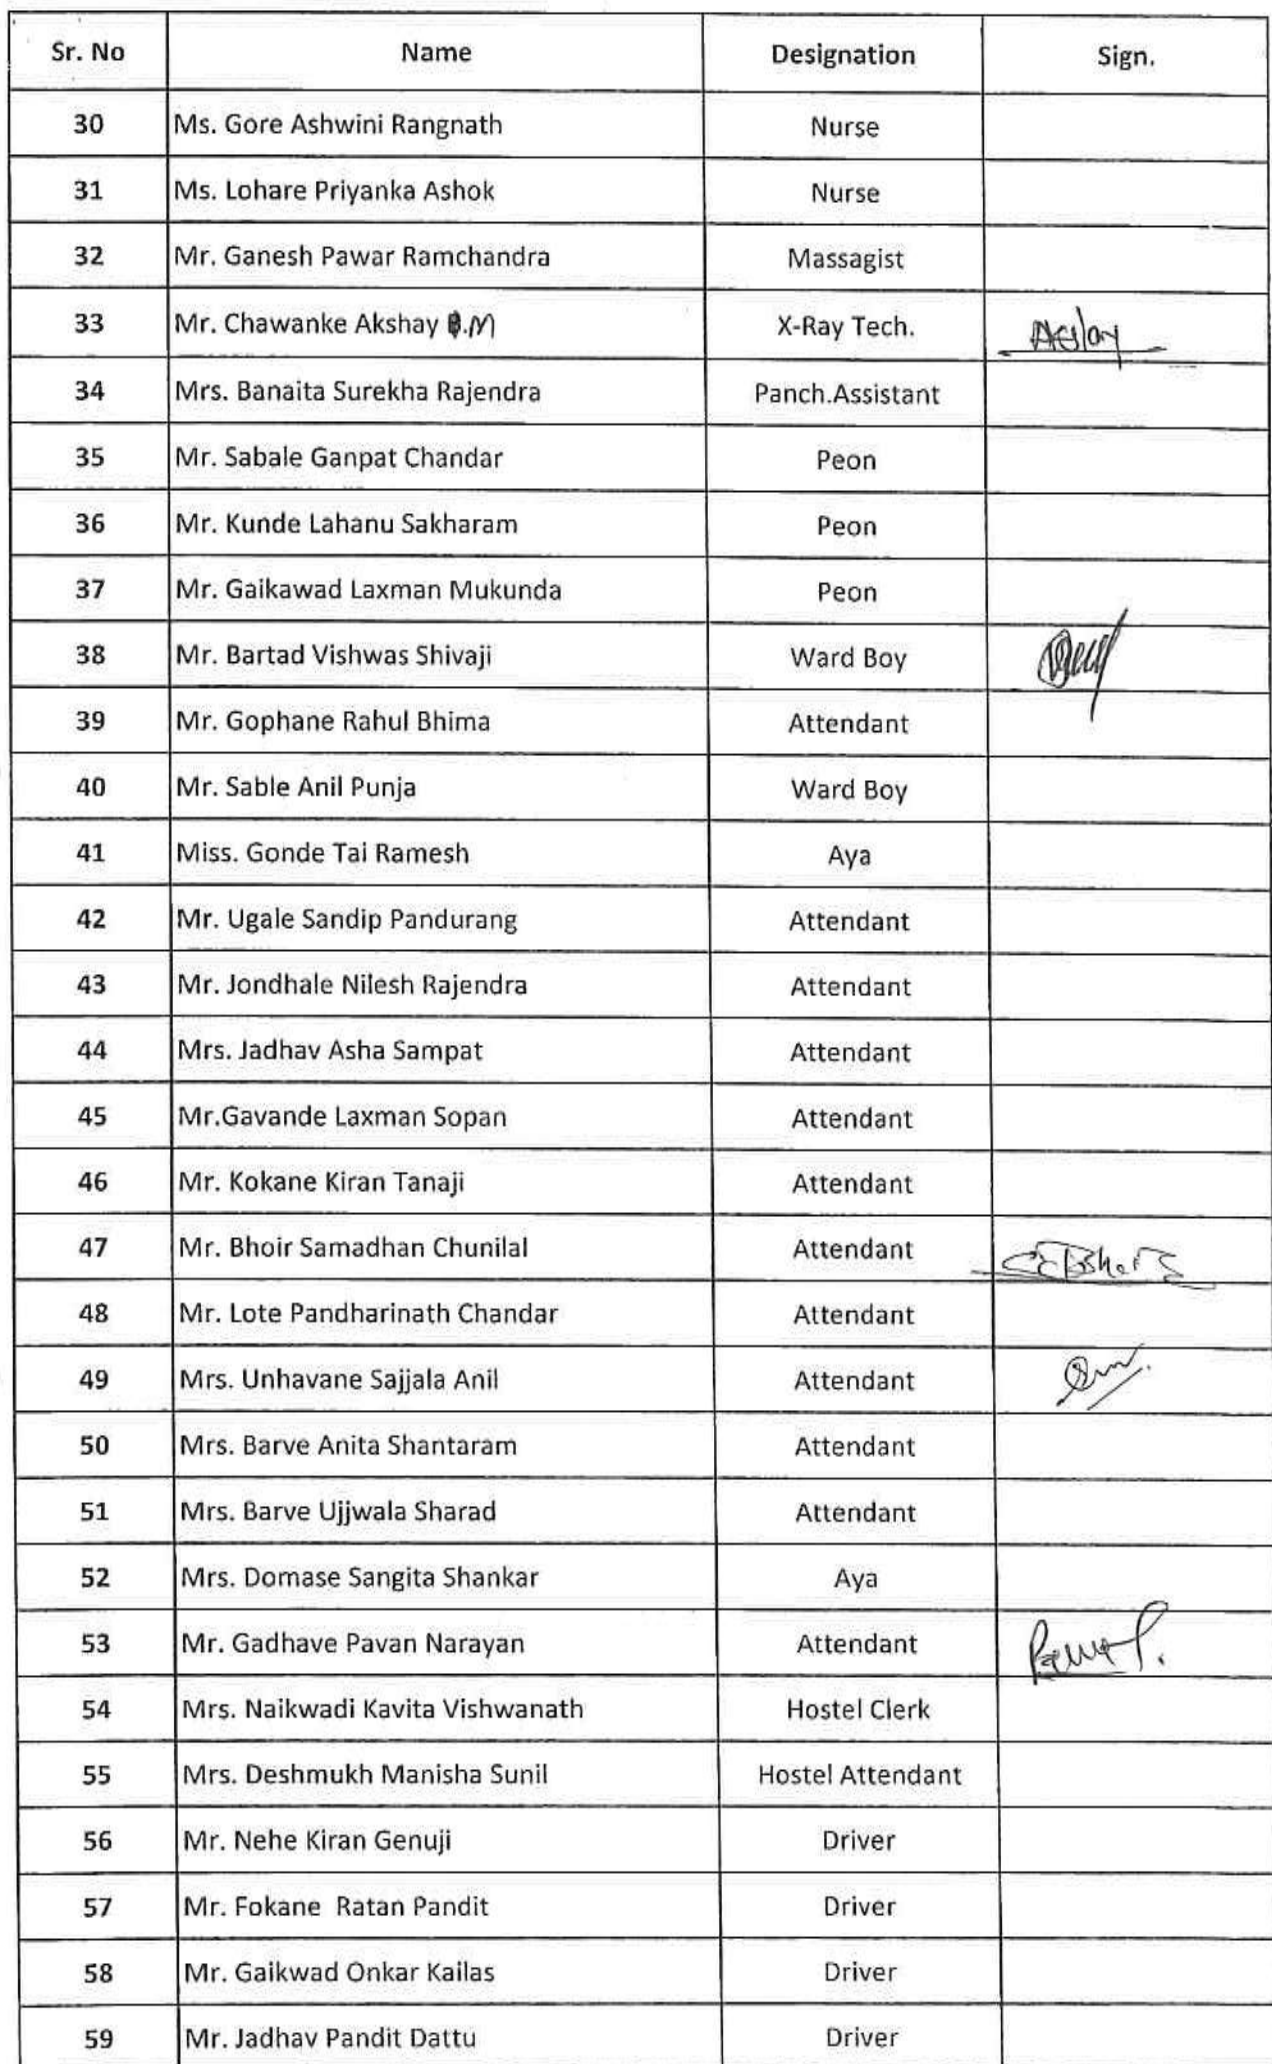 Sr. No Name Designation Sign.
30 Ms. Gore Ashwini Rangnath Nurse
31 Ms. Lohare Priyanka Ashok Nurse
32 Mr. Ganesh Pawar Ramchandra Massagist
33 Mr. Chawanke Akshay B.M X-Ray Tech.
34 Mrs. Banaita Surekha Rajendra Panch.Assistant
35 Mr. Sabale Ganpat Chandar Peon
36 Mr. Kunde Lahanu Sakharam Peon
37 Mr. Gaikawad Laxman Mukunda Peon
38 Mr. Bartad Vishwas Shivaji Ward Boy
39 Mr. Gophane Rahul Bhima Attendant
40 Mr. Sable Anil Punja Ward Boy
41 Miss. Gonde Tai Ramesh Aya
42 Mr. Ugale Sandip Pandurang Attendant
43 Mr. Jondhale Nilesh Rajendra Attendant
44 Mrs. Jadhav Asha Sampat Attendant
45 Mr.Gavande Laxman Sopan Attendant
46 Mr. Kokane Kiran Tanaji Attendant
47 Mr. Bhoir Samadhan Chunilal Attendant
48 Mr. Lote Pandharinath Chandar Attendant
49 Mrs. Unhavane Sajjala Anil Attendant
50 Mrs. Barve Anita Shantaram Attendant
51 Mrs. Barve Ujjwala Sharad Attendant
52 Mrs. Domase Sangita Shankar Aya
53 Mr. Gadhave Pavan Narayan Attendant
54 Mrs. Naikwadi Kavita Vishwanath Hostel Clerk
55 Mrs. Deshmukh Manisha Sunil Hostel Attendant
56 Mr. Nehe Kiran Genuji Driver
57 Mr. Fokane Ratan Pandit Driver
58 Mr. Gaikwad Onkar Kailas Driver
59 Mr. Jadhav Pandit Dattu Driver